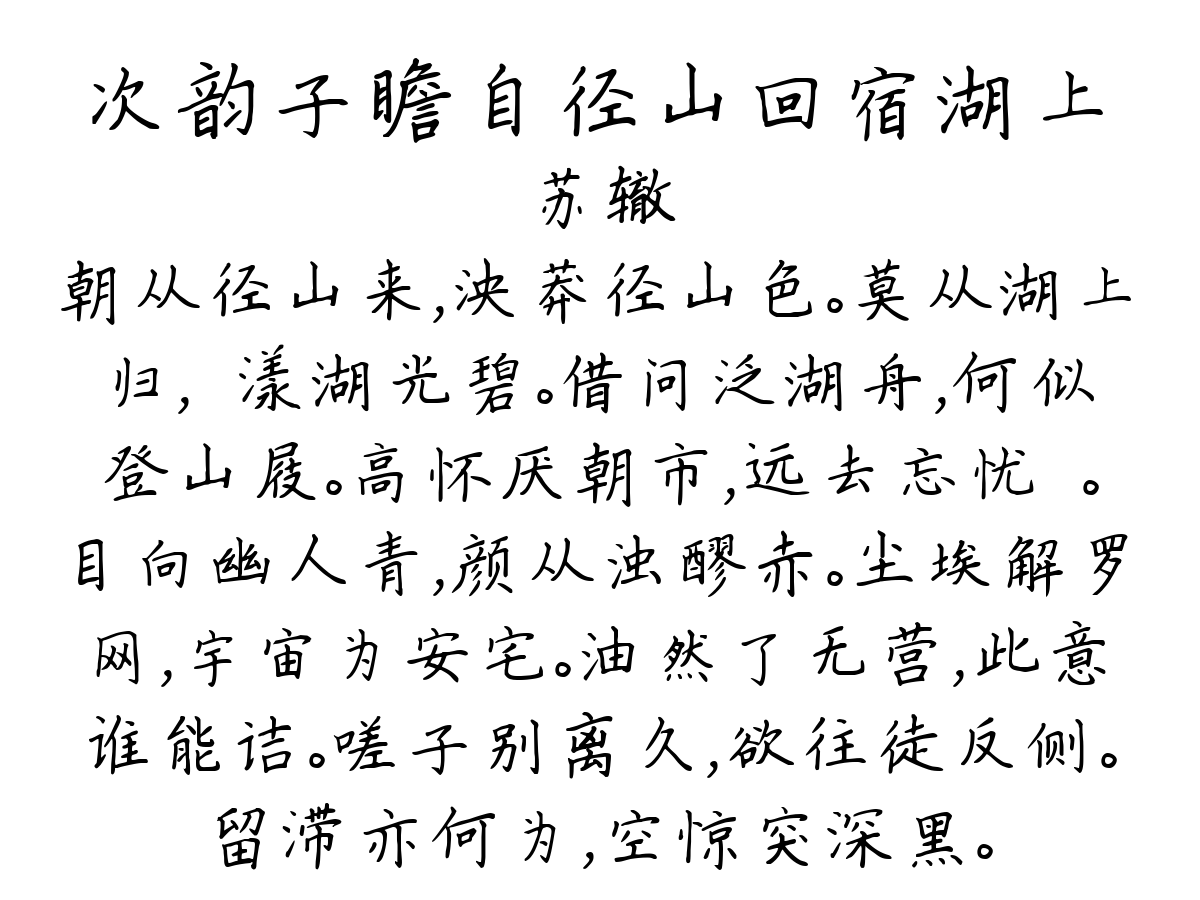 次韵子瞻自径山回宿湖上
苏辙
朝从径山来,泱莽径山色。莫从湖上
归, 漾湖光碧。借问泛湖舟,何似
登山屐。高怀厌朝市,远去忘忧 。
目向幽人青,颜从浊醪赤。尘埃解罗
网,宇宙为安宅。油然了无营,此意
谁能诘。嗟子别离久,欲往徒反侧。
留滞亦何为,空惊突深黑。